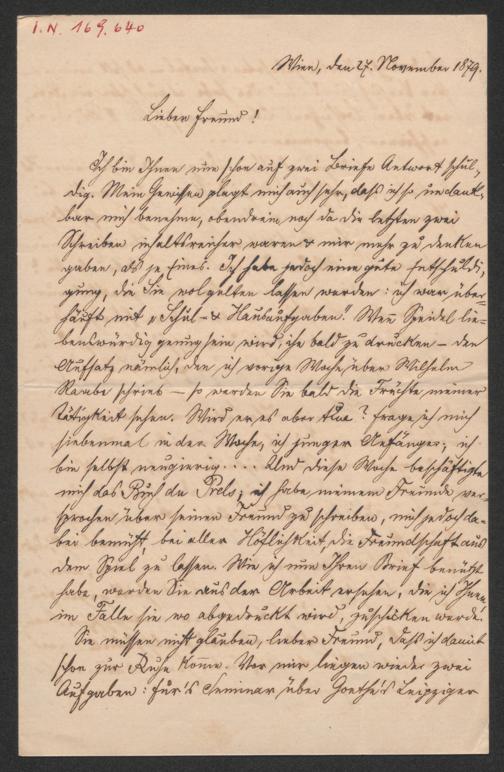 I.N. 169.640
Wien, den 27. November 1879.
Lieber Freund!
Ich bin Ihnen nun schon auf zwei Briefe Antwort schul-
dig. Mein Gewissen plagt mich auch sehr, daß ich so undank-
bar mich benehme, obendrein noch da die letzten zwei
Schreiben inhaltsreicher waren & mir mehr zu denken
gaben, als je Eines. Ich habe jedoch eine gute Entschuldi-
gung, die Sie wol gelten lassen werden: ich war über-
häuft mit „Schul- & Hausaufgaben. Wen Speidel lie-
benswürdig genug sein wird, ihn bald zu drucken – den
Aufsatz nämlich, den ich vorige Woche über Wilhelm
Raabe schrieb – so werden Sie bald die Früchte meiner
Tätigkeit sehen. Wird er es aber tun? frage ich mich
siebenmal in der Woche, ich junger Anfänger; ich
bin selbst neugierig.... Und diese Woche beschäftigte
mich das Buch du Prels; ich habe meinem Freunde ver-
sprochen über seinen Freund zu schreiben, mich jedoch da-
bei bemüht, bei aller Höflichkeit die Freundschaft aus
dem Spiel zu lassen. Wie ich nun Ihren Brief benützt
habe, werden Sie aus der Arbeit ersehen, die ich Ihnen
im Falle sie wo abgedruckt wird, zuschicken werde.
Sie müssen nicht glauben, lieber Freund, daß ich damit
schon zur Ruhe kome. Vor mir liegen wieder zwei
Aufgaben: für's Seminar über Goethe's Leipziger